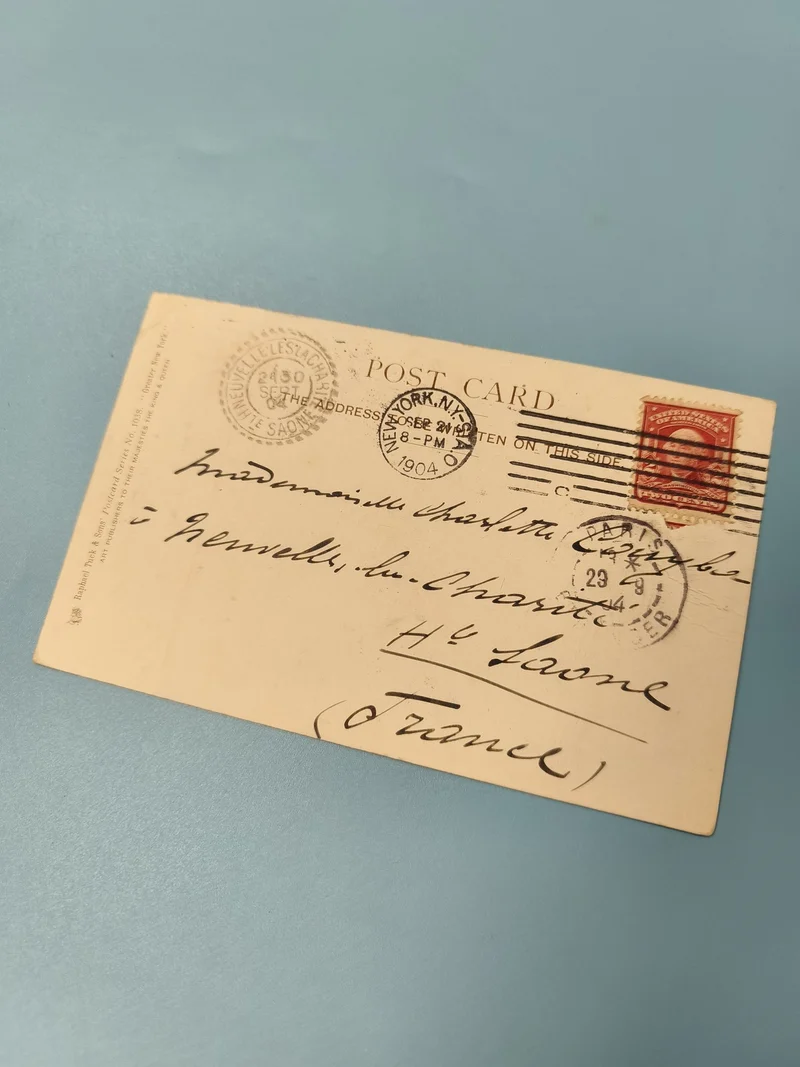 POST CARD
THE ADDRESS TO BE WRITTEN ON THIS SIDE
NEW YORK, N.Y.
SEP 21
8-PM
1904
NEUVELLE LES LA CHARITÉ
30
SEPT
04
Hte SAONE
UNITED STATES
OF AMERICA
TWO CENTS
PARIS
29 9
04
Mademoiselle Charlotte
à Neuvelle-les-Charité
Hte Saone
(France)
Raphael Tuck & Sons' Postcard Series No. 1038. "Greater New York."
ART PUBLISHERS TO THEIR MAJESTIES THE KING & QUEEN